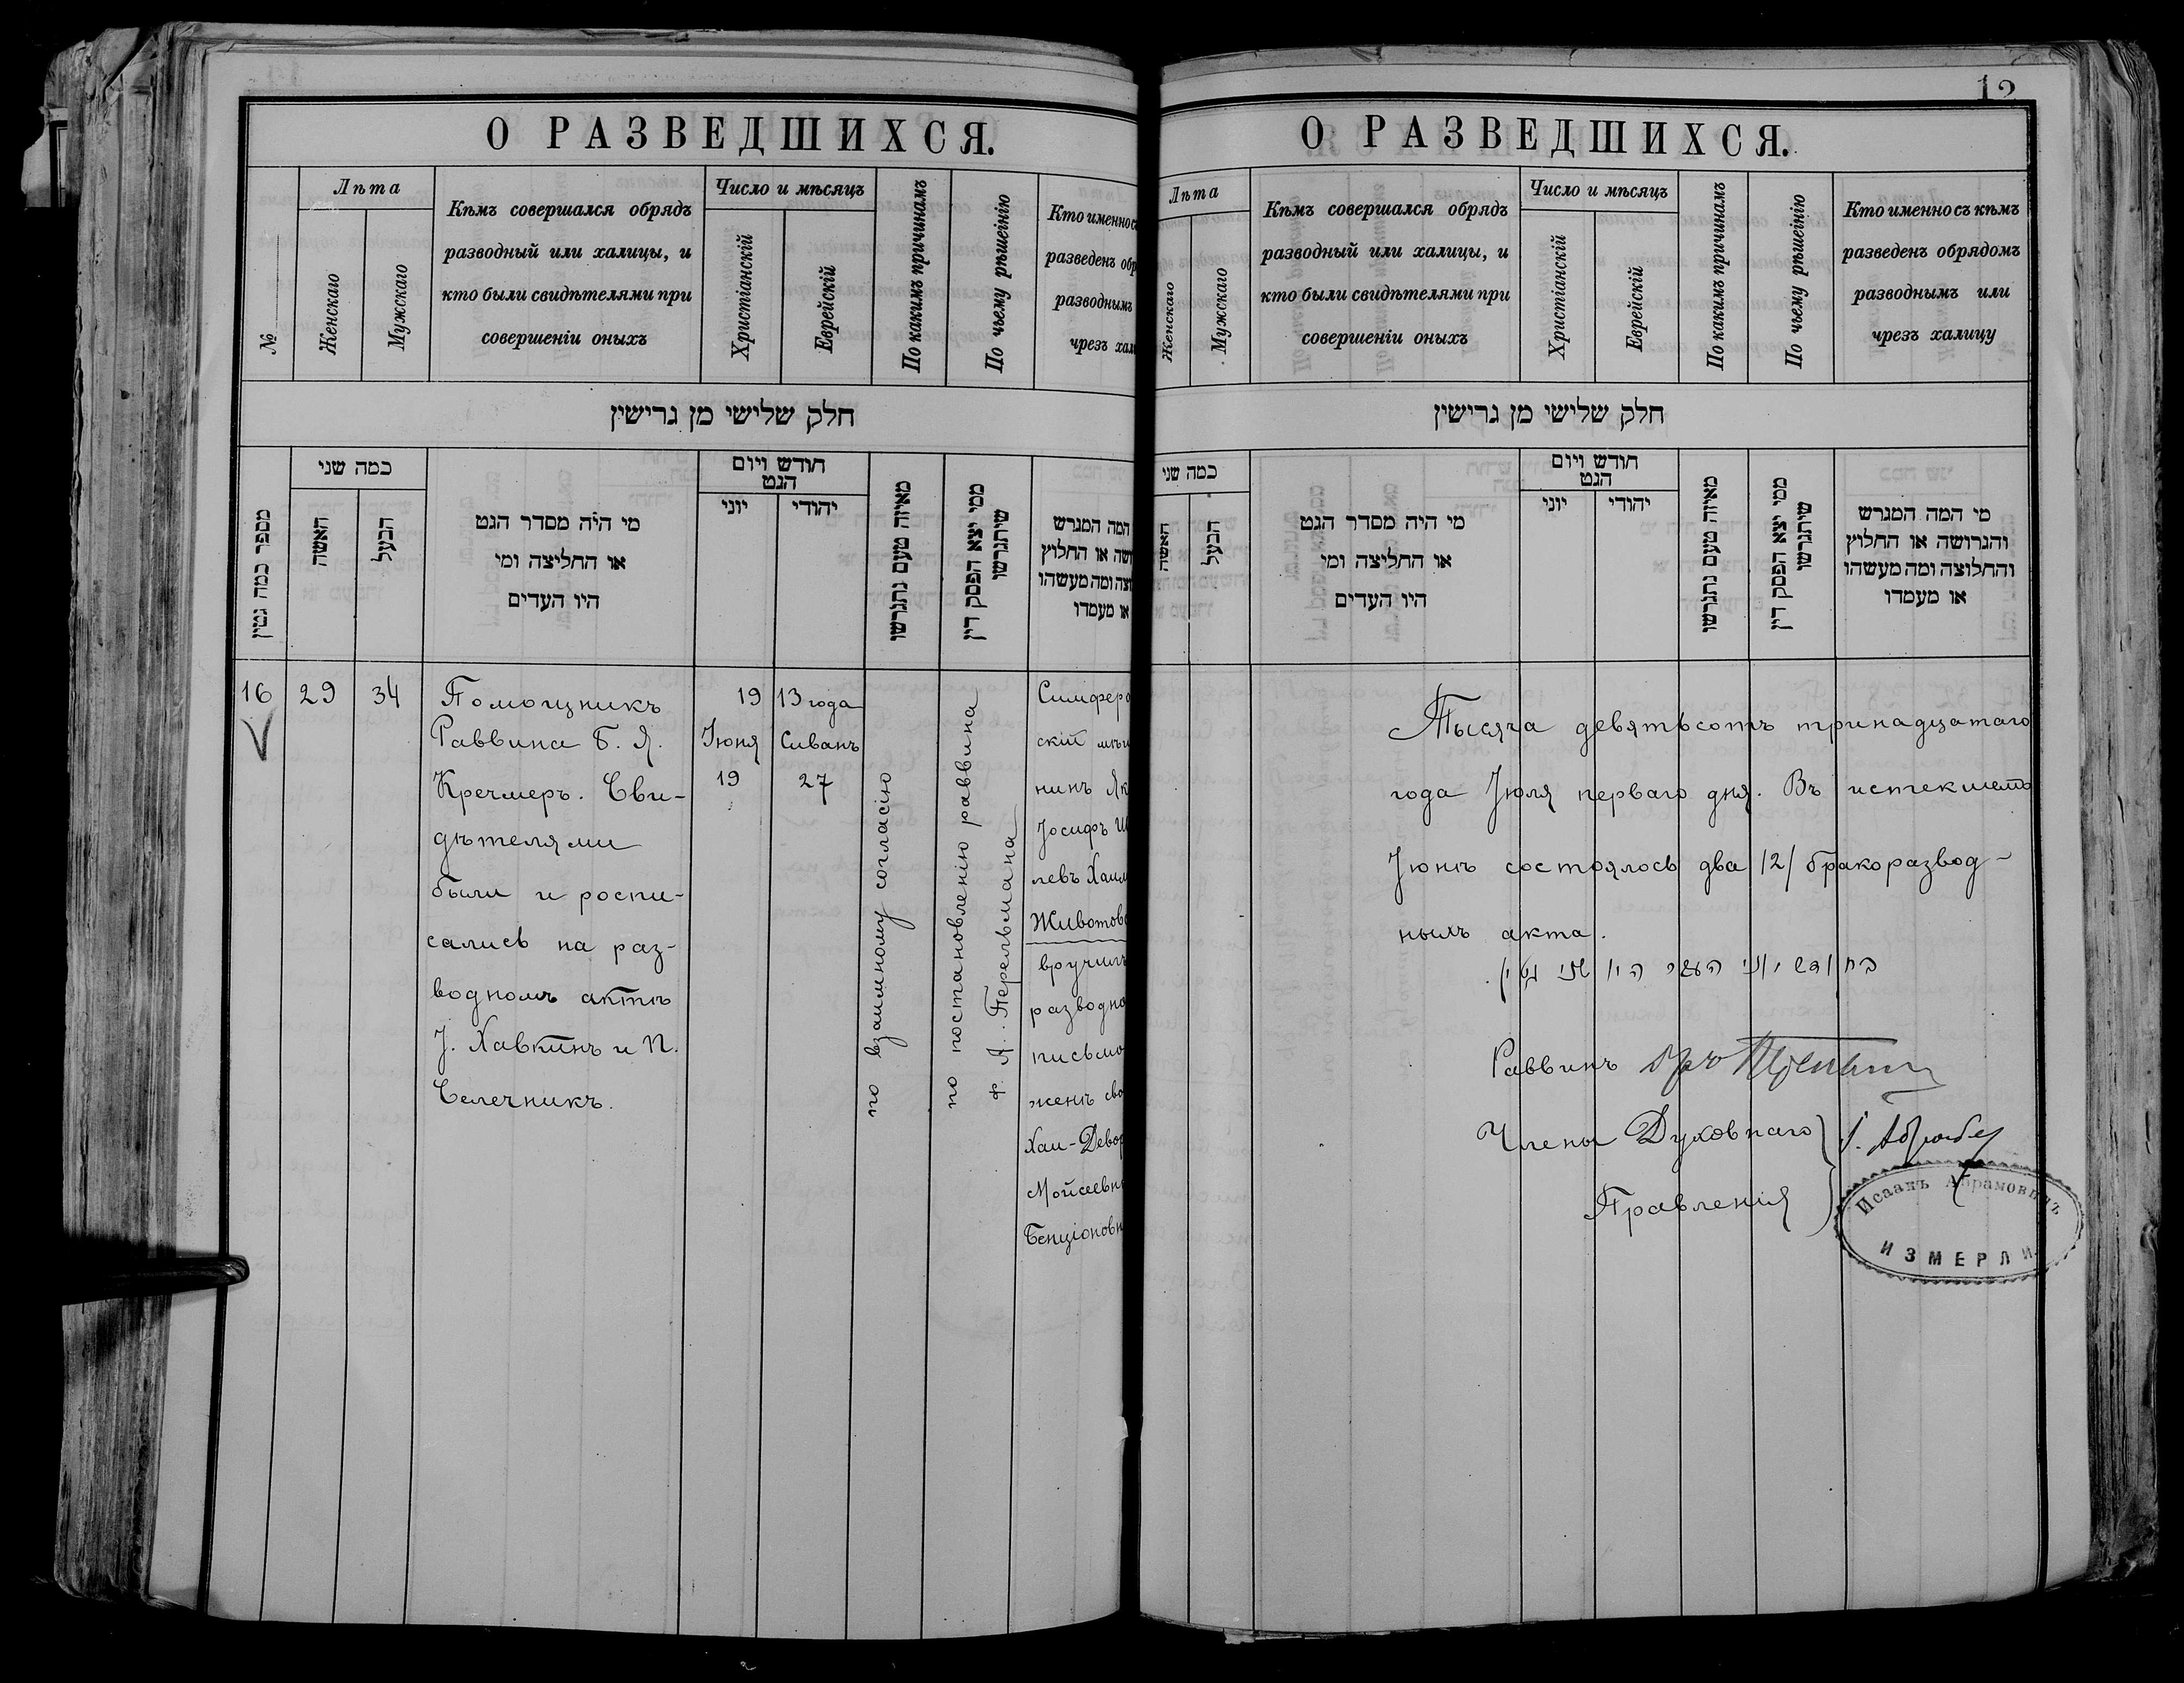 О РАЗВЕДШИХСЯ.
№
Лѣта
Женскаго
Мужскаго
Кѣмъ совершался обрядъ
разводный или халицы, и
кто были свидѣтелями при
совершеніи оныхъ
Число и мѣсяцъ
Христіанскій
Еврейскій
По какимъ причинамъ
По чьему рѣшенію
Кто именно съ
разведенъ обр
разводнымъ
чрезъ хал
חלק שלישי מן גרישין
מספר כמה גטין
כמה שני
האשה
הבעל
מי היה מסדר הגט
או החליצה ומי
היו העדים
חודש ויום
הגט
יוני
יהודי
מאיזה טעם נתגרשו
ממי יצא הפסק דין
שיתגרשו
המה המגרש
ושה או החלוץ
וצה ומה מעשהו
או מעמדו
16
29
34
Помощникъ
Раввина Б. Я.
Кречмеръ. Сви-
дѣтелями
были и роспи-
сались на раз-
водномъ актѣ
І. Хавкинъ и П.
Селечникъ.
19 13 года
Іюня Сиванъ
19 27
по взаимному согласію
по постановленію раввина
Ф. Я. Перельмана
Симферо
скій мѣщ
нинъ Як
Іосифъ Ш
левъ Хаим
Животов
вручилъ
разводно
письмо
женѣ сво
Хаи-Девор
Мойсеевн
Бенціоновн
12
О РАЗВЕДШИХСЯ.
Лѣта
Женскаго
Мужскаго
Кѣмъ совершался обрядъ
разводный или халицы, и
кто были свидѣтелями при
совершеніи оныхъ
Число и мѣсяцъ
Христіанскій
Еврейскій
По какимъ причинамъ
По чьему рѣшенію
Кто именно съ кѣмъ
разведенъ обрядомъ
разводнымъ или
чрезъ халицу
חלק שלישי מן גרישין
כמה שני
האשה
הבעל
מי היה מסדר הגט
או החליצה ומי
היו העדים
חודש ויום
הגט
יוני
יהודי
מאיזה טעם נתגרשו
ממי יצא הפסק דין
שיתגרשו
מי המה המגרש
והגרושה או החלוץ
והחלוצה ומה מעשהו
או מעמדו
Тысяча девятьсотъ тринадцатаго
года Іюля перваго дня. Въ истекшемъ
Іюнѣ состоялось два /2/ бракоразвод-
ныхъ акта.
בחודש יוני היו שני גטין.
Раввинъ
Члены Духовнаго
Правленія
Исаакъ Абрамовичъ
ИЗМЕРЛИ